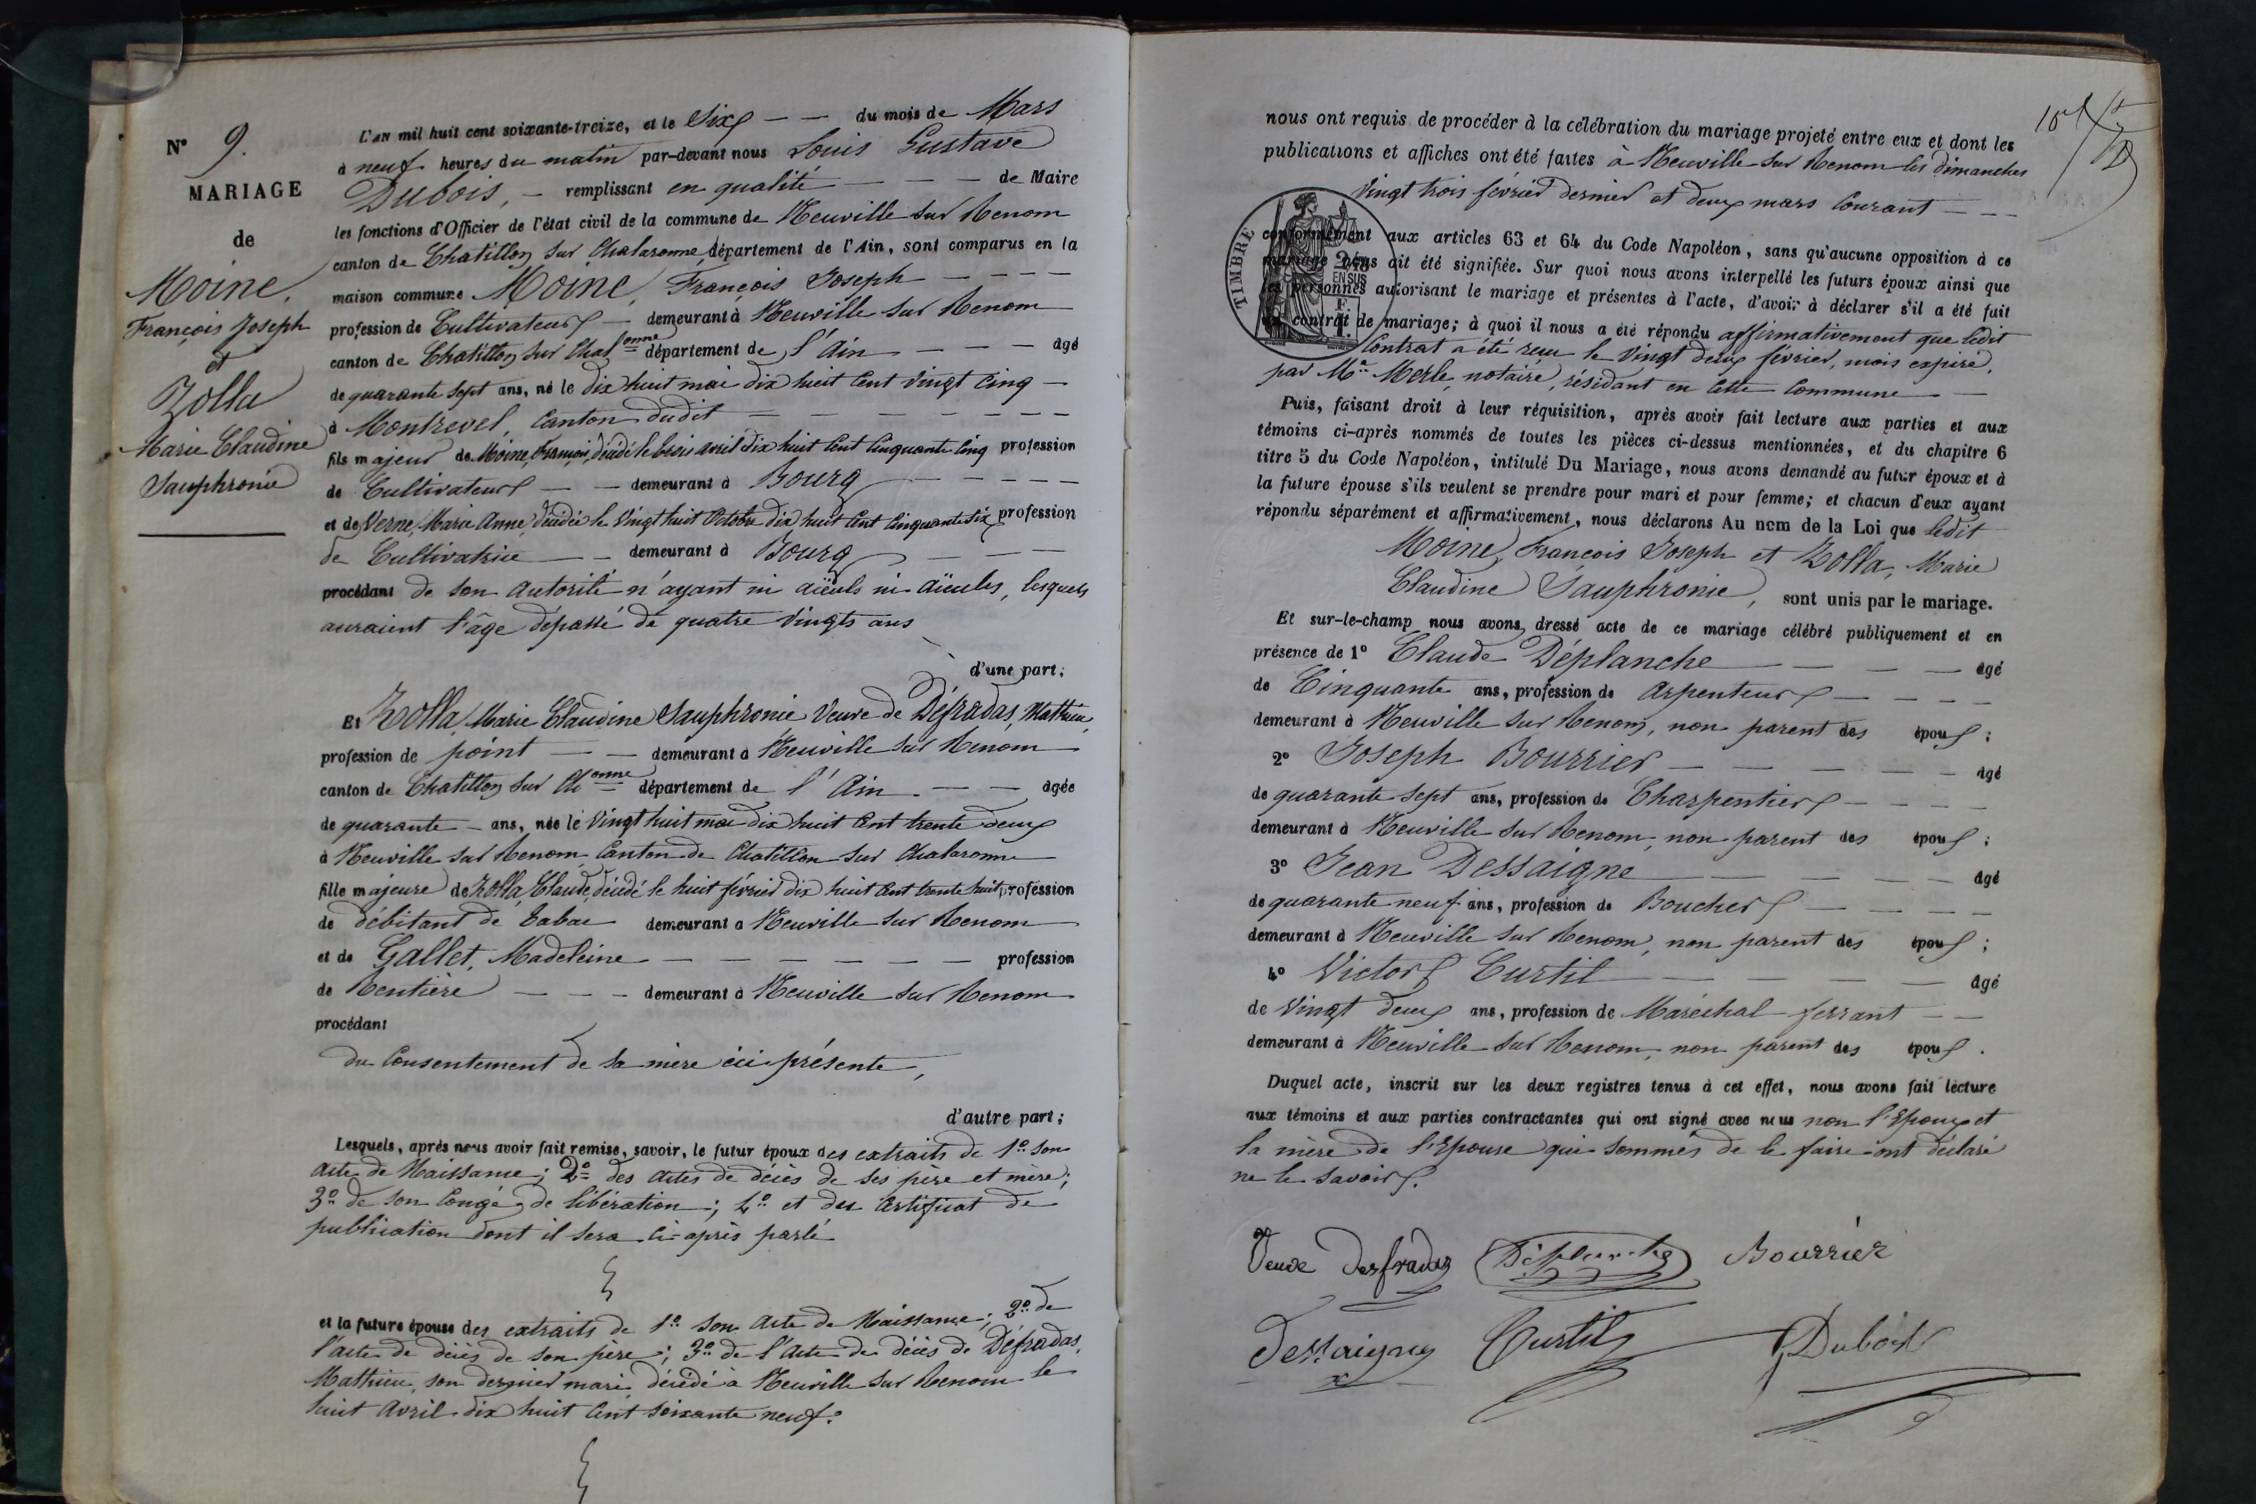 N° 9.
MARIAGE
de
Moine,
François Joseph
et
Zolla
Marie Claudine
Sauphronie
L'AN mil huit cent soixante-treize, et le Six — — du mois de Mars
à neuf heures du matin par-devant nous Louis Gustave
Dubois, — remplissant en qualité — — — de Maire
les fonctions d'Officier de l'état civil de la commune de Neuville sur Renom
canton de Chatillon sur Chalaronne, département de l'Ain, sont comparus en la
maison commune Moine, François Joseph — — — —
profession de Cultivateur — demeurant à Neuville sur Renom
canton de Chatillon sur Chalonne département de l'Ain — — — âgé
de quarante sept ans, né le dix huit mai dix huit cent vingt cinq —
à Montrevel, canton dudit — — — — — — —
fils majeur de Moine, François, décédé le trois avril dix huit cent cinquante cinq profession
de Cultivateur — — demeurant à Bourg — — — — —
et de Verne, Marie Anne, décédée le vingt huit octobre dix huit cent cinquante six profession
de Cultivatrice — — demeurant à Bourg — — —
procédant de son autorité n'ayant ni aïeuls ni aïeules, lesquels
auraient l'âge dépassé de quatre vingts ans
d'une part;
Et Zolla, Marie Claudine Sauphronie Veuve de Défradas, Mathieu,
profession de point — — demeurant à Neuville sur Renom
canton de Chatillon sur Chonne département de l'Ain. — — âgée
de quarante — ans, née le vingt huit mai dix huit cent trente deux
à Neuville sur Renom, canton de Chatillon sur Chalaronne
fille majeure de Zolla, Claude, décédé le huit février dix huit cent trente huit, profession
de débitant de tabac demeurant à Neuville sur Renom
et de Gallet, Madeleine — — — — — — profession
de Rentière — — — demeurant à Neuville sur Renom
procédant
du consentement de sa mère ici présente,
d'autre part;
Lesquels, après nous avoir fait remise, savoir, le futur époux des extraits de 1° son
acte de Naissance; 2° des actes de décès de ses père et mère;
3° de son congé de libération; 4° et des certificat de
publication dont il sera ci-après parlé
et la future épouse des extraits de 1° son acte de Naissance; 2° de
l'acte de décès de son père; 3° de l'acte de décès de Défradas,
Mathieu, son dernier mari, décédé à Neuville sur Renom le
huit avril dix huit cent soixante neuf.
nous ont requis de procéder à la célébration du mariage projeté entre eux et dont les
publications et affiches ont été faites à Neuville sur Renom les dimanches
vingt trois février dernier et deux mars courant — — —
TIMBRE
2/10
EN SUS
conformément aux articles 63 et 64 du Code Napoléon, sans qu'aucune opposition à ce
mariage nous ait été signifiée. Sur quoi nous avons interpellé les futurs époux ainsi que
les personnes autorisant le mariage et présentes à l'acte, d'avoir à déclarer s'il a été fait
un contrat de mariage; à quoi il nous a été répondu affirmativement que ledit
contrat a été reçu le vingt deux février, mois expiré,
par Me Merle, notaire, résidant en cette commune —
Puis, faisant droit à leur réquisition, après avoir fait lecture aux parties et aux
témoins ci-après nommés de toutes les pièces ci-dessus mentionnées, et du chapitre 6
titre 5 du Code Napoléon, intitulé Du Mariage, nous avons demandé au futur époux et à
la future épouse s'ils veulent se prendre pour mari et pour femme; et chacun d'eux ayant
répondu séparément et affirmativement, nous déclarons Au nom de la Loi que ledit
Moine, François Joseph et Zolla, Marie
Claudine Sauphronie, sont unis par le mariage.
Et sur-le-champ nous avons dressé acte de ce mariage célébré publiquement et en
présence de 1° Claude Déplanche — — — âgé
de Cinquante ans, profession de arpenteur — — — —
demeurant à Neuville sur Renom, non parent des époux;
2° Joseph Bourrier — — — — — âgé
de quarante sept ans, profession de Charpentier — — — —
demeurant à Neuville sur Renom, non parent des époux;
3° Jean Dessaigne — — — — âgé
de quarante neuf ans, profession de Boucher — — — —
demeurant à Neuville sur Renom, non parent des époux;
4° Victor Curtil — — — — âgé
de vingt deux ans, profession de Maréchal ferrant — —
demeurant à Neuville sur Renom, non parent des époux.
Duquel acte, inscrit sur les deux registres tenus à cet effet, nous avons fait lecture
aux témoins et aux parties contractantes qui ont signé avec nous non l'Epoux et
la mère de l'Epouse qui sommés de le faire ont déclaré
ne le savoir.
Veuve Desfradas Déplanche Bourrier
Dessaigne Curtil Dubois